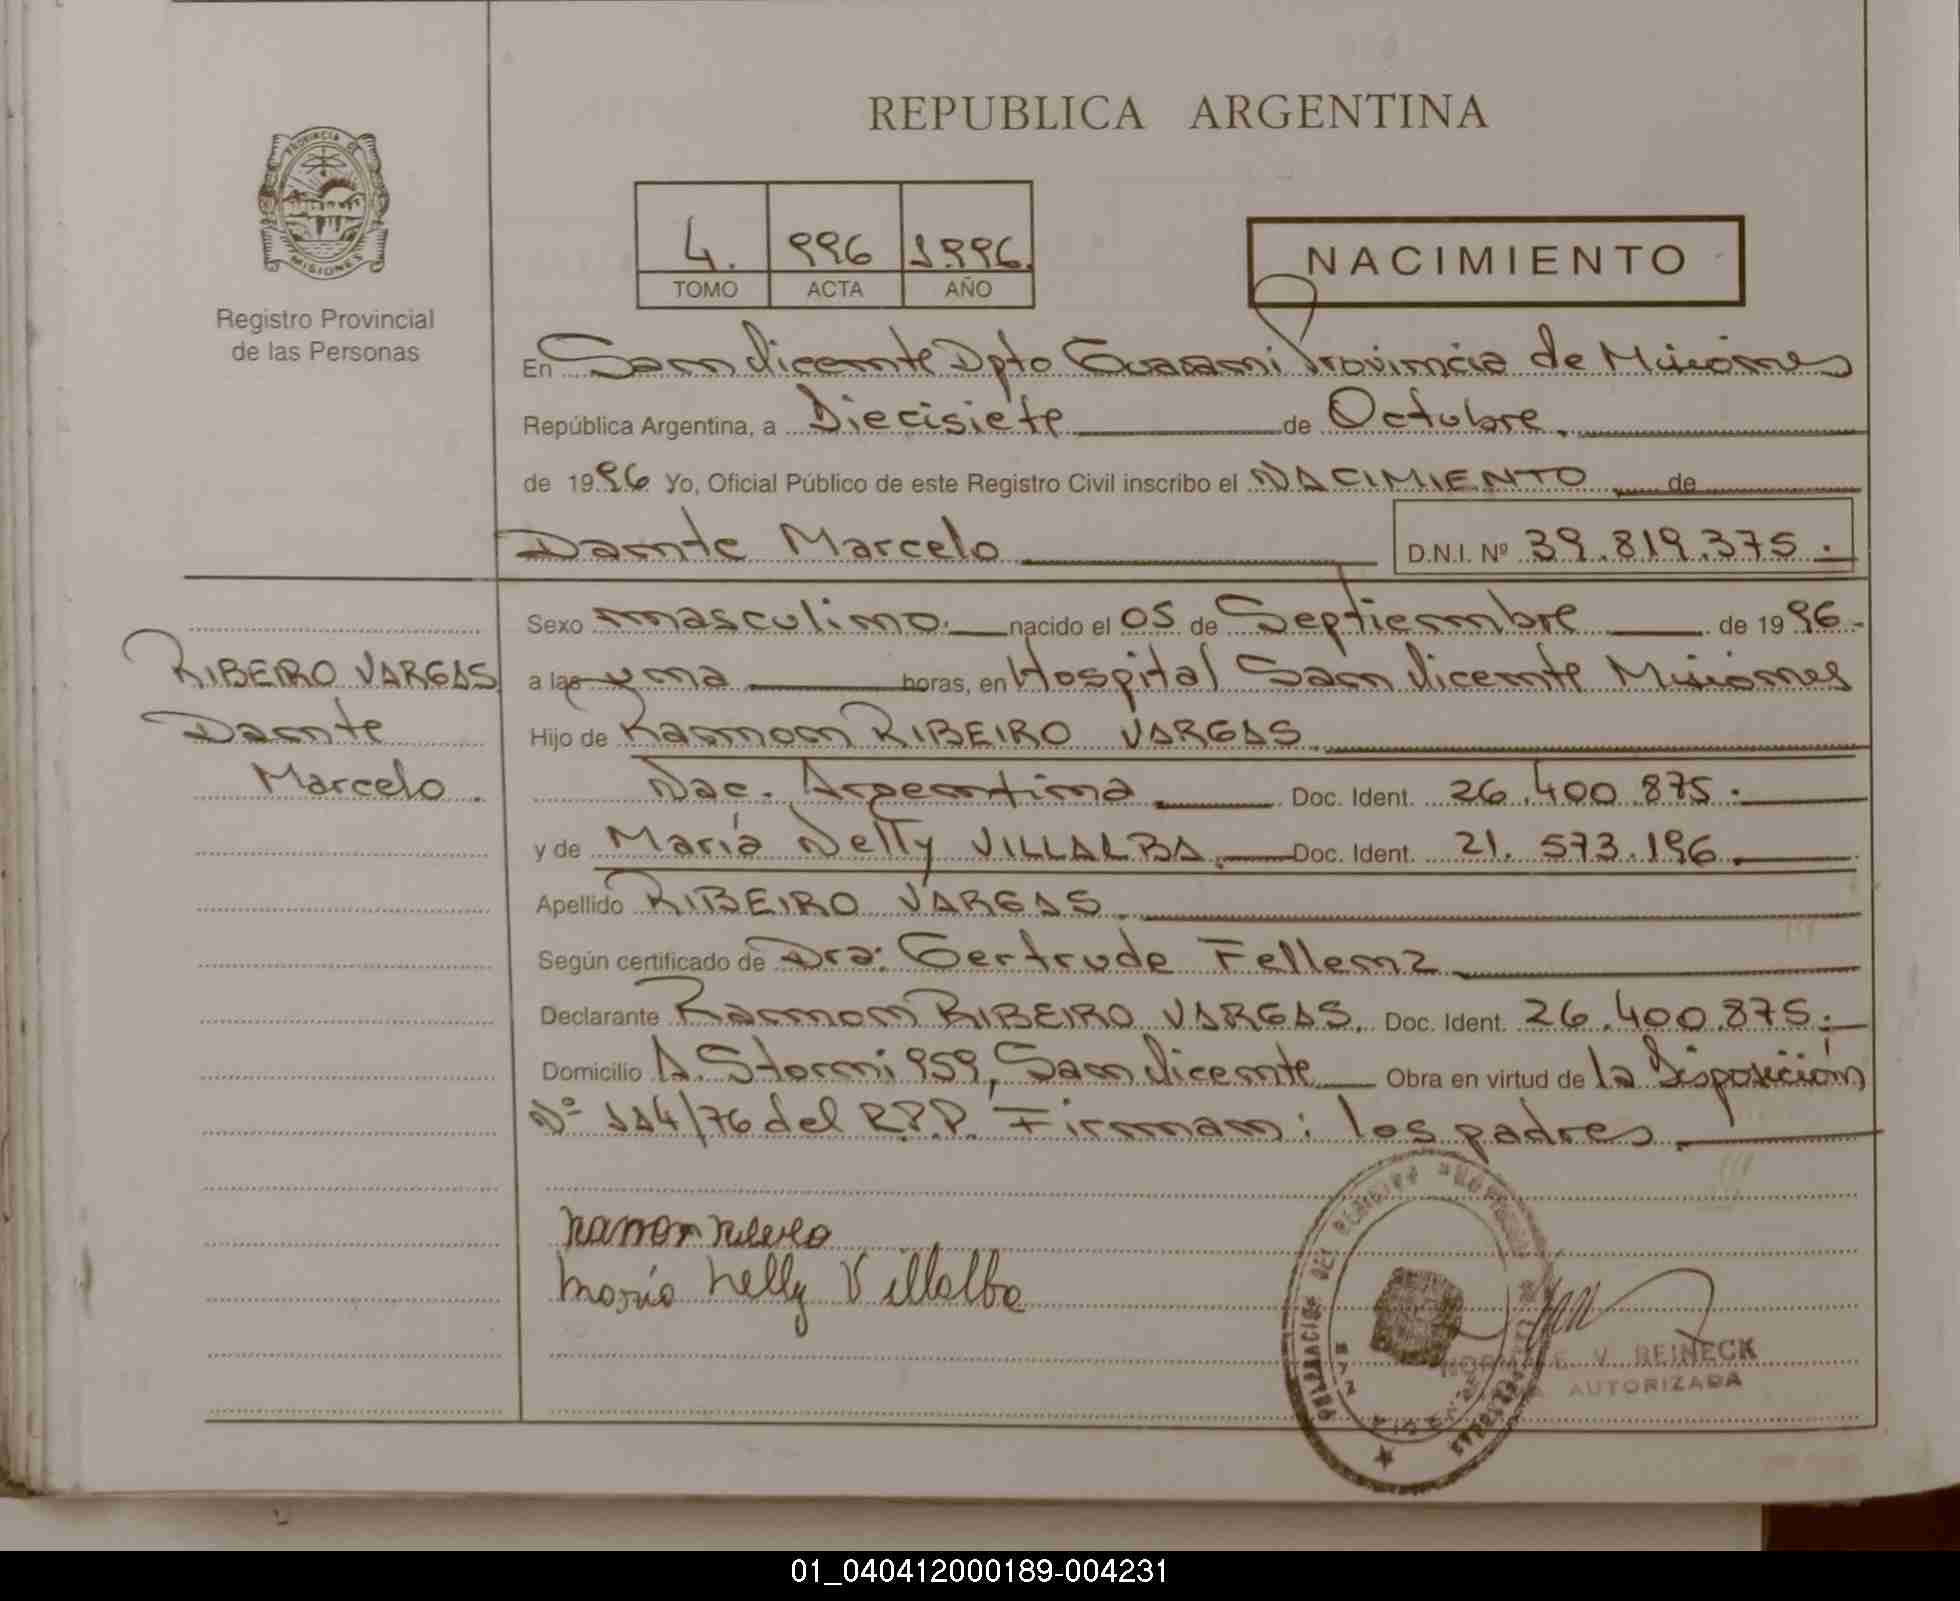 REPUBLICA ARGENTINA
PROVINCIA DE
MISIONES
Registro Provincial
de las Personas
4. 996 1996.
TOMO ACTA AÑO
NACIMIENTO
En San Vicente Dpto Guarani Provincia de Misiones
República Argentina, a Diecisiete de Octubre.
de 1996 Yo, Oficial Público de este Registro Civil inscribo el NACIMIENTO de
Dante Marcelo D.N.I. Nº 39.819.375.
RIBEIRO VARGAS
Dante
Marcelo.
Sexo masculino. nacido el 05 de Septiembre de 1996.
a las una horas, en Hospital San Vicente Misiones
Hijo de Ramon RIBEIRO VARGAS.
Nac. Argentina Doc. Ident. 26.400.875.
y de María Nelly VILLALBA. Doc. Ident. 21.573.196.
Apellido RIBEIRO VARGAS.
Según certificado de Dra: Gertrude Fellenz
Declarante Ramon RIBEIRO VARGAS. Doc. Ident. 26.400.875.
Domicilio A. Storni 959, San Vicente Obra en virtud de la Disposición
Nº 114/76 del R.P.P. Firman: los padres.
Ramon Ribeiro
Maria Nelly Villalba
V. REINECK
AUTORIZADA
01_040412000189-004231